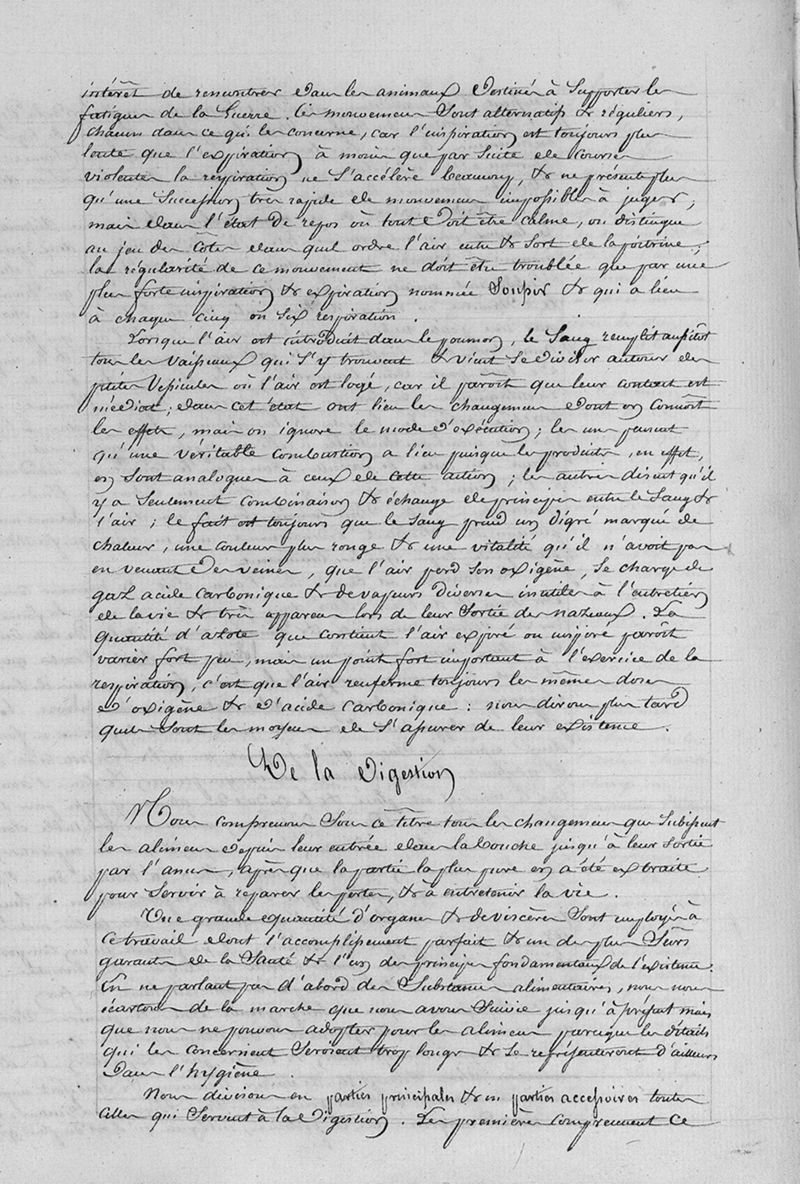 intérêt de rencontrer dans les animaux destinés à supporter les
fatigues de la Guerre. Ces mouvemens sont alternatifs & réguliers,
chacun dans ce qui les concerne, car l'inspiration est toujours plus
lente que l'expiration à moins que par suite de courses
violentes la respiration ne s'accélère beaucoup, & ne présente plus
qu'une succession très rapide de mouvemens impossibles à juger;
mais dans l'état de repos où tout doit être calme, on distingue
au jeu des côtes dans quel ordre l'air entre & sort de la poitrine;
la régularité de ce mouvement ne doit être troublée que par une
plus forte inspiration & expiration nommée Soupir & qui a lieu
à chaque cinq ou six respiration.
Lorsque l'air est introduit dans le poumon, le Sang remplit aussitôt
tous les vaisseaux qui s'y trouvent & vient se diviser autour des
petites vésicules où l'air est logé, car il paroit que leur contact est
médiat; dans cet état ont lieu les changemens dont on connoit
les effets, mais on ignore le mode d'exécution; les uns pensent
qu'une véritable combustion a lieu puisque les produits, en effet,
en sont analogues à ceux de cette action; les autres disent qu'il
y a seulement combinaison & échange de principes entre le Sang &
l'air; le fait est toujours que le Sang prend un dégré marqué de
chaleur, une couleur plus rouge & une vitalité qu'il n'avoit pas
en venant des veines, que l'air perd son oxigène, se charge de
gaz acide carbonique & de vapeurs diverses inutiles à l'entretien
de la vie & très apparens lors de leur sortie des nazeaux. La
quantité d'azote que contient l'air expiré ou inspiré paroit
varier fort peu, mais un point fort important à l'exercice de la
respiration, c'est que l'air renferme toujours les mêmes doses
d'oxigène & d'acide carbonique: nous dirons plus tard
quels sont les moyens de s'assurer de leur existence.
De la Digestion
Nous comprenons sous ce titre tous les changemens que subissent
les alimens depuis leur entrée dans la bouche jusqu'à leur sortie
par l'anus, après que la partie la plus pure en a été extraite
pour servir à réparer les pertes, & à entretenir la vie.
Une grande quantité d'organes & de viscères sont employés à
ce travail dont l'accomplissement parfait & un des plus sûrs
garants de la santé & l'un des principes fondamentaux de l'existence.
En ne parlant pas d'abord des substances alimentaires, nous nous
écartons de la marche que nous avons suivie jusqu'à présent mais
que nous ne pouvons adopter pour les alimens parceque les détails
qui les concernent seroient trop longs & se représenteront d'ailleurs
dans l'hygiène.
Nous divisons en parties principales & en parties accessoires toutes
celles qui servent à la digestion. Les premières comprennent ce